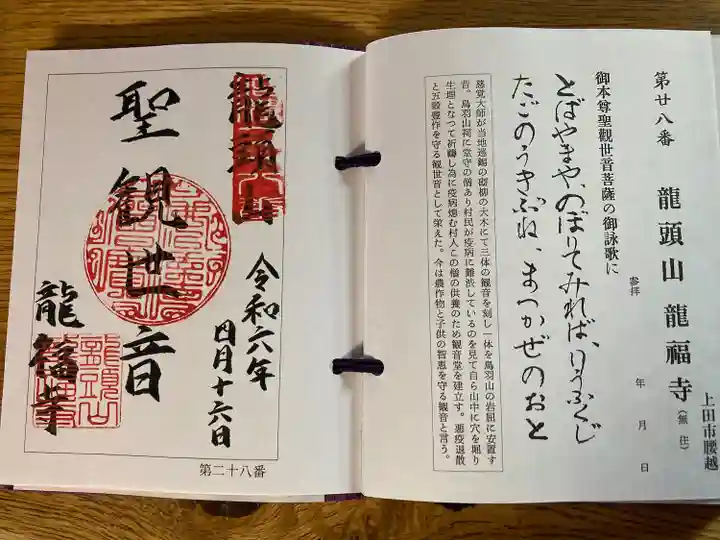 第廿八番 龍頭山 龍福寺(無住)
上田市腰越
参拝 年 月 日
御本尊聖觀世音菩薩の御詠歌に
とばやまや、のぼりてみれば、りうふくじ
たごのうきぶね、まつかぜのおと
慈覚大師が当地巡錫の砌柳の大木にて三体の観音を刻し一体を鳥羽山の岩屈に安置す
昔。鳥羽山祠に堂守の僧あり村民が疫病に難渋しているのを見て自ら山中に穴を堀り
生埋となつて祈禱し為に疫病熄む村人この僧の供養のため観音堂を建立す。悪疫退散
と五穀豊作を守る観世音として栄えた。今は農作物と子供の智恵を守る観音と言う。
龍頭山
聖観世音
令和六年
四月十六日
龍福寺
第二十八番